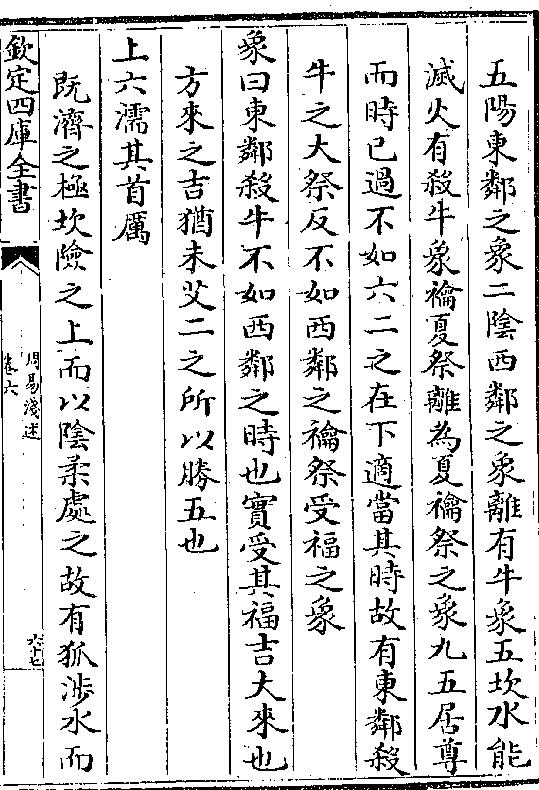 五陽東鄰之象二陰西鄰之象離有牛象五坎水能
滅火有殺牛象禴夏祭離為夏禴祭之象九五居尊
而時已過不如六二之在下適當其時故有東鄰殺
牛之大祭反不如西鄰之禴祭受福之象
象曰東鄰殺牛不如西鄰之時也實受其福吉大來也
方來之吉猶未艾二之所以勝五也
上六濡其首厲
既濟之極坎險之上而以陰柔處之故有狐涉水而
欽定四庫全書
周易淺述
卷六
六十七